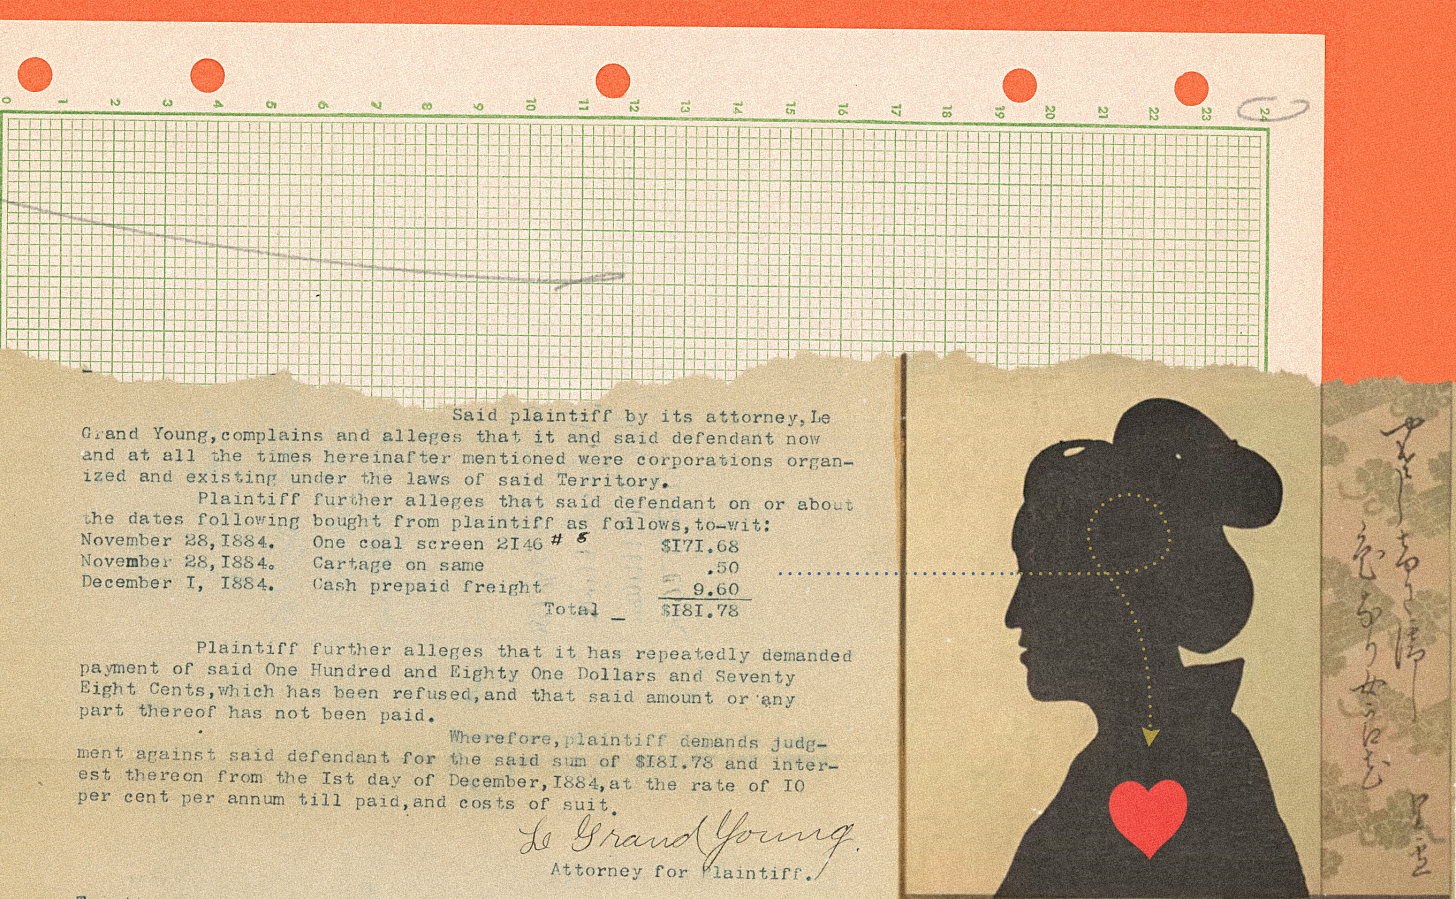 0 1 2 3 4 5 6 7 8 9 10 11 12 13 14 15 16 17 18 19 20 21 22 23 24
Said plaintiff by its attorney,Le
Grand Young,complains and alleges that it and said defendant now
and at all the times hereinafter mentioned were corporations organ-
ized and existing under the laws of said Territory.
Plaintiff further alleges that said defendant on or about
the dates following bought from plaintiff as follows,to-wit:
November 28,I884. One coal screen 2I46 # 8 $I7I.68
November 28,I884. Cartage on same .50
December I, I884. Cash prepaid freight 9.60
Total _ $I8I.78
Plaintiff further alleges that it has repeatedly demanded
payment of said One Hundred and Eighty One Dollars and Seventy
Eight Cents,which has been refused,and that said amount or any
part thereof has not been paid.
Wherefore,plaintiff demands judg-
ment against said defendant for the said sum of $I8I.78 and inter-
est thereon from the Ist day of December,I884,at the rate of I0
per cent per annum till paid,and costs of suit.
Le Grand Young.
Attorney for Plaintiff.